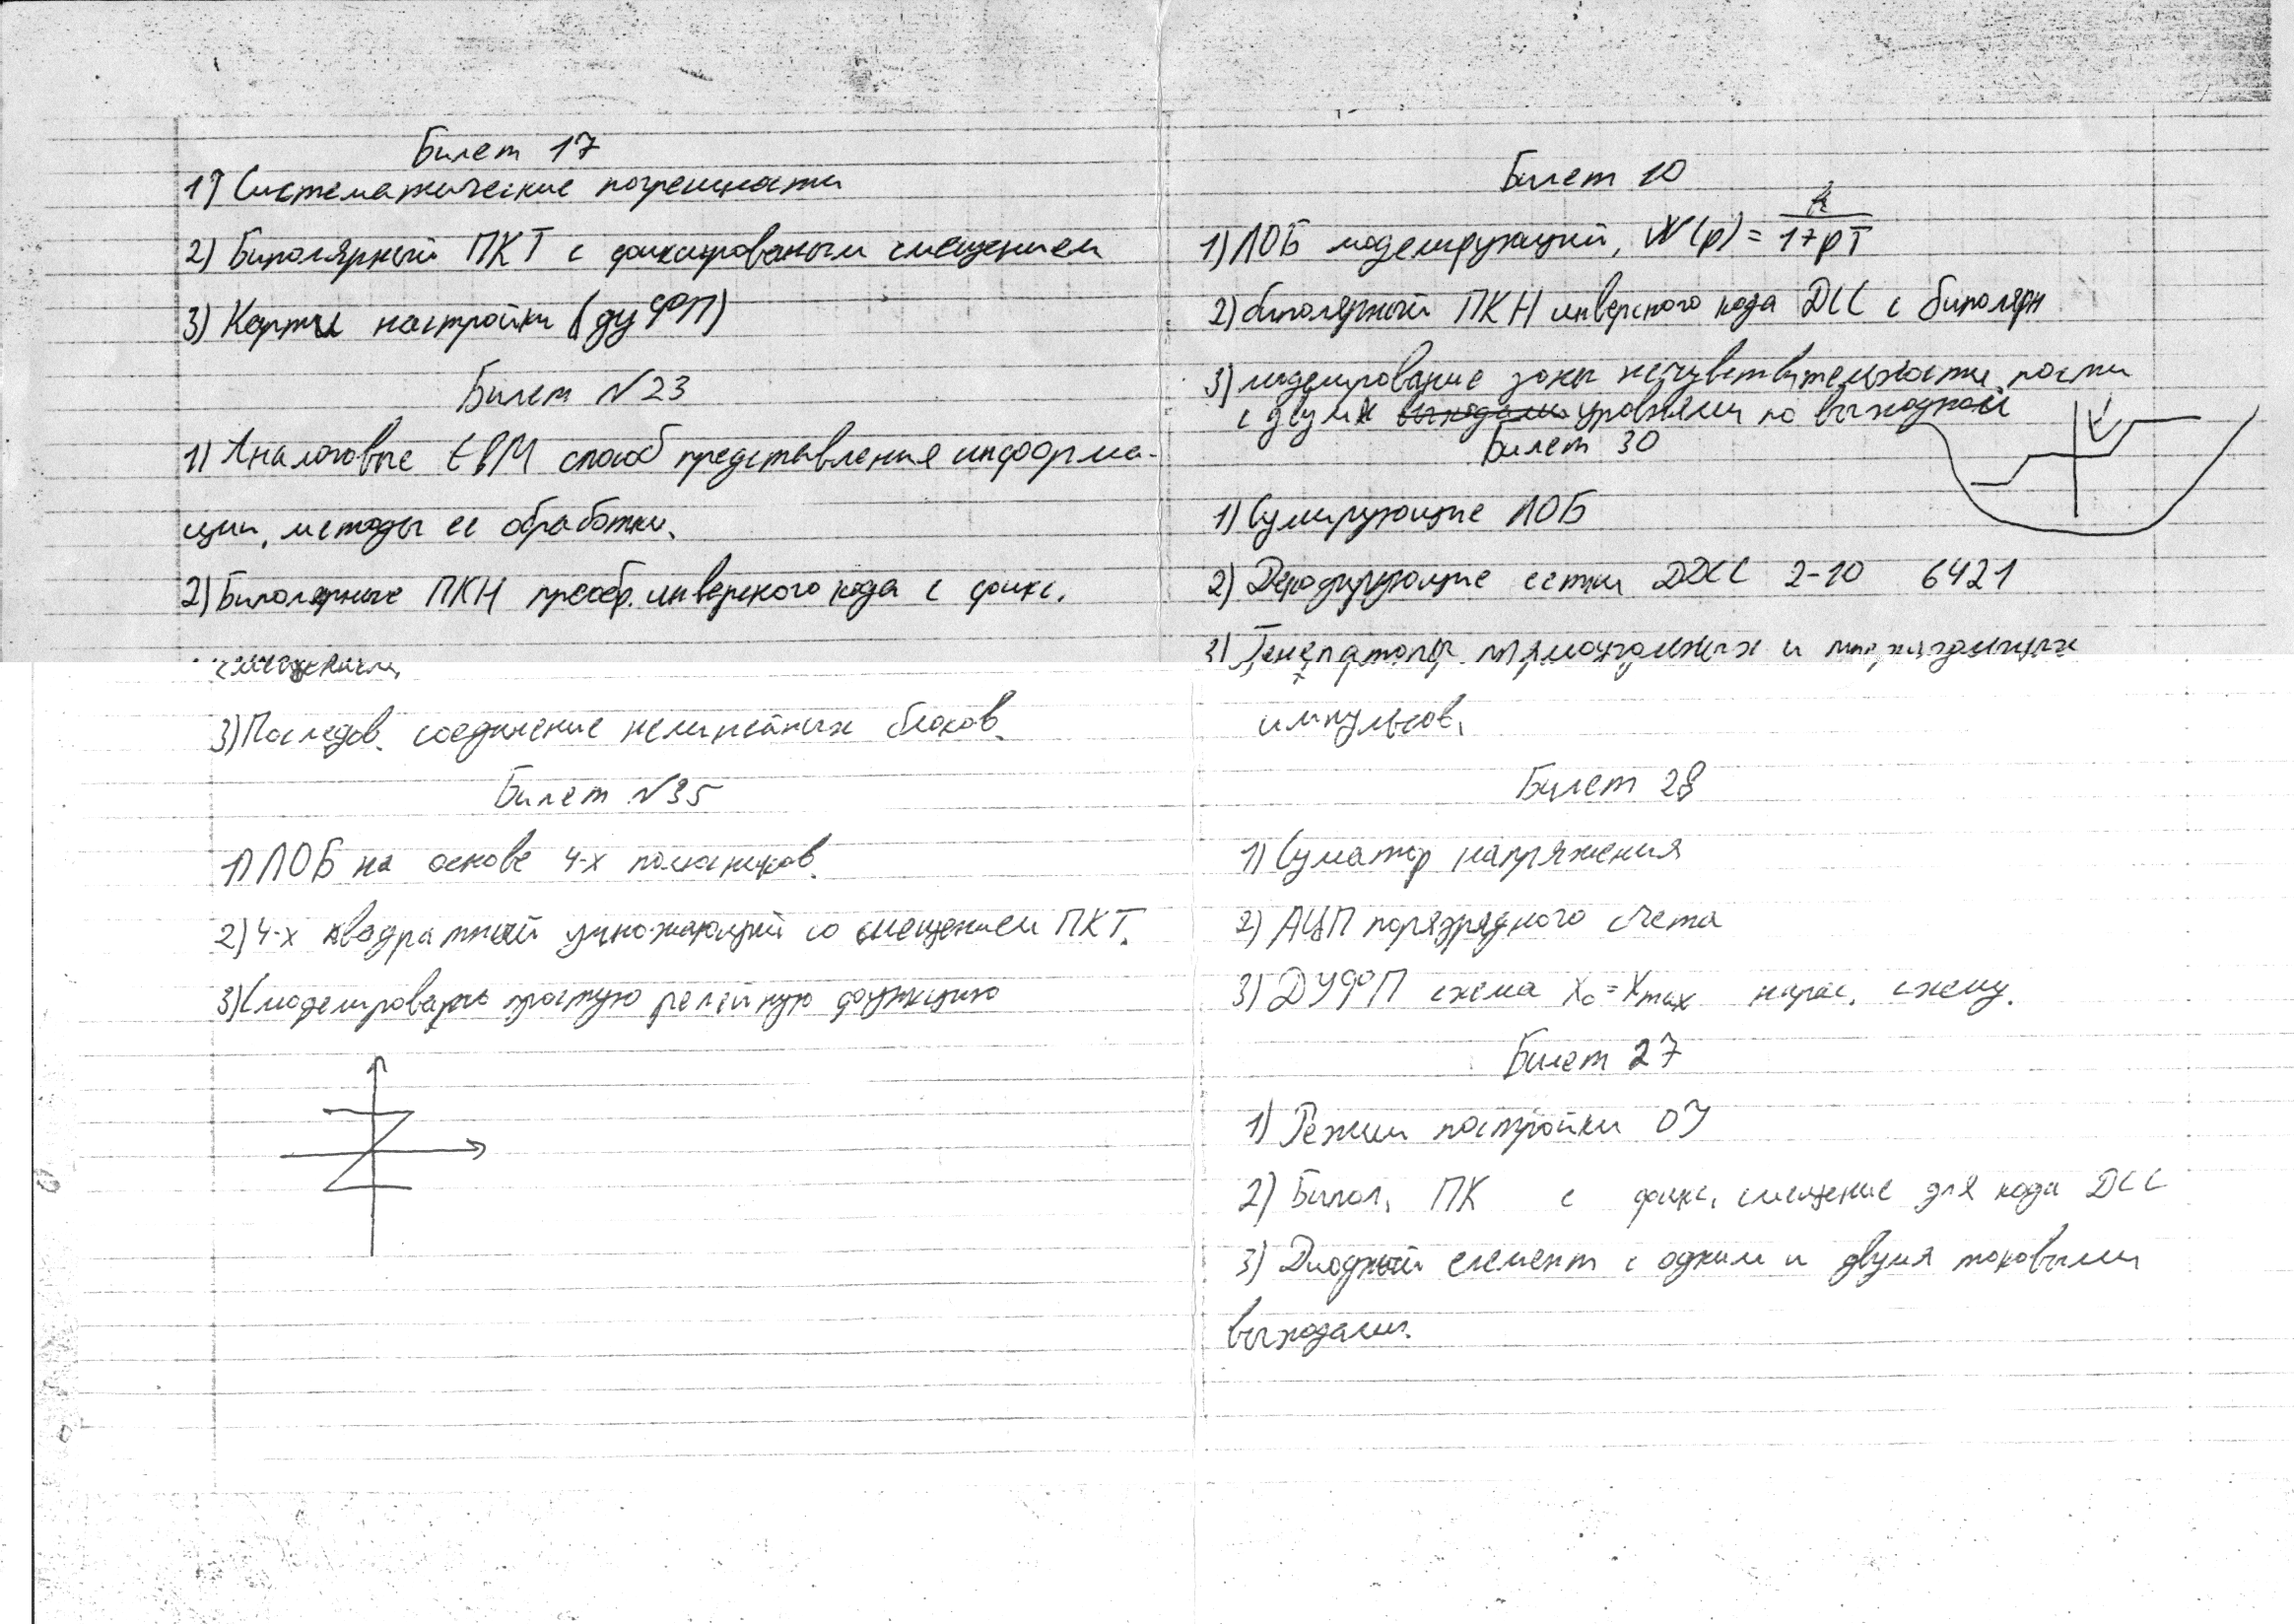 Билет 17
1) Систематические погрешности
2) Биполярный ПКТ с фиксированым смещением
3) Карты настройки (ДУФП)
Билет №23
1) Аналоговые ЕВМ способ представления информа-
ции, методы ее обработки.
2) Биполярные ПКН преобр. инверсного кода с фикс.
смещением
3) Последов. соединение нелинейных блоков.
Билет №35
1) ЛОБ на основе 4-х полюсников.
2) 4-х квадратный умножающий со смещением ПКТ.
3) Смоделировать простую релейную функцию
Билет 10
1) ЛОБ моделирующий, W(p) = k / 1+pT
2) биполярный ПКН инверсного кода ДСС с биполярн
3) моделирование зоны нечувствительности
с двумя уровнями по выходной
Билет 30
1) Сумирующие ЛОБ
2) Декодирующие сетки ДДСС 2-10 6421
3) Генераторы прямоугольных и
импульсов.
Билет 28
1) Суматор напряжения
2) АЦП поразрядного счета
3) ДУФП схема X₀ = Xmax нарис. схему.
Билет 27
1) Режим настройки ОУ
2) Бипол. ПК с фикс. смещение для кода ДСС
3) Диодный елемент с одним и двумя токовыми
выходами.